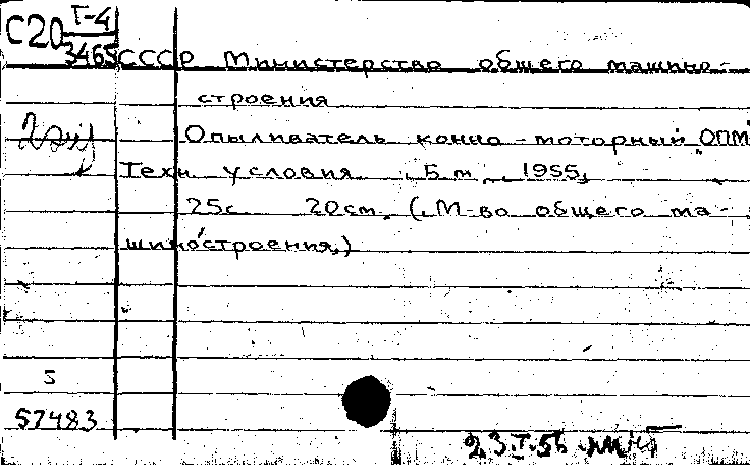 С20 Т-4
3465
СССР Министерство общего машино-
строения
Опыливатель конно-моторный "ОПМ
Техн условия. Б. м., 1955,
25с. 20см. (М-во общего ма-
шиностроения)
5
57483
23.I.56